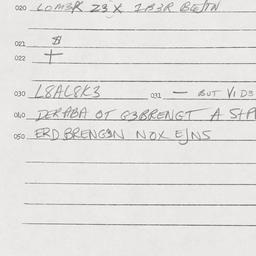 020 LOM3R Z3X 1B3R BE/TN
021 $
022 †
030 L8AL8K3 031 — BUT VID3
040 DERABA OT G3BRENGT A StA
050 ERD BRENG3N NOX E/NS